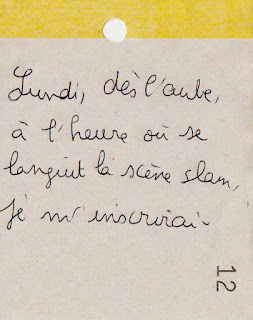 Lundi, dès l'aube,
à l'heure où se
languit la scène slam,
je m'inscrirai.
12